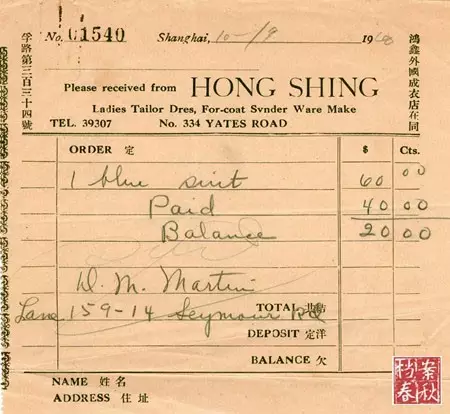 No. C1540 Shanghai, 10-/9 19
Please received from HONG SHING
Ladies Tailor Dres, For-coat Svnder Ware Make
TEL. 39307 No. 334 YATES ROAD
孚路第三百三十四號
鴻鑫外國成衣店在同
ORDER 定 $ Cts.
1 blue suit 60 00
Paid 40 00
Balance 20 00
D. M. Martin
Lane 159-14 Seymour Rd
TOTAL 共結
DEPOSIT 定洋
BALANCE 欠
NAME 姓名
ADDRESS 住址
档案春秋